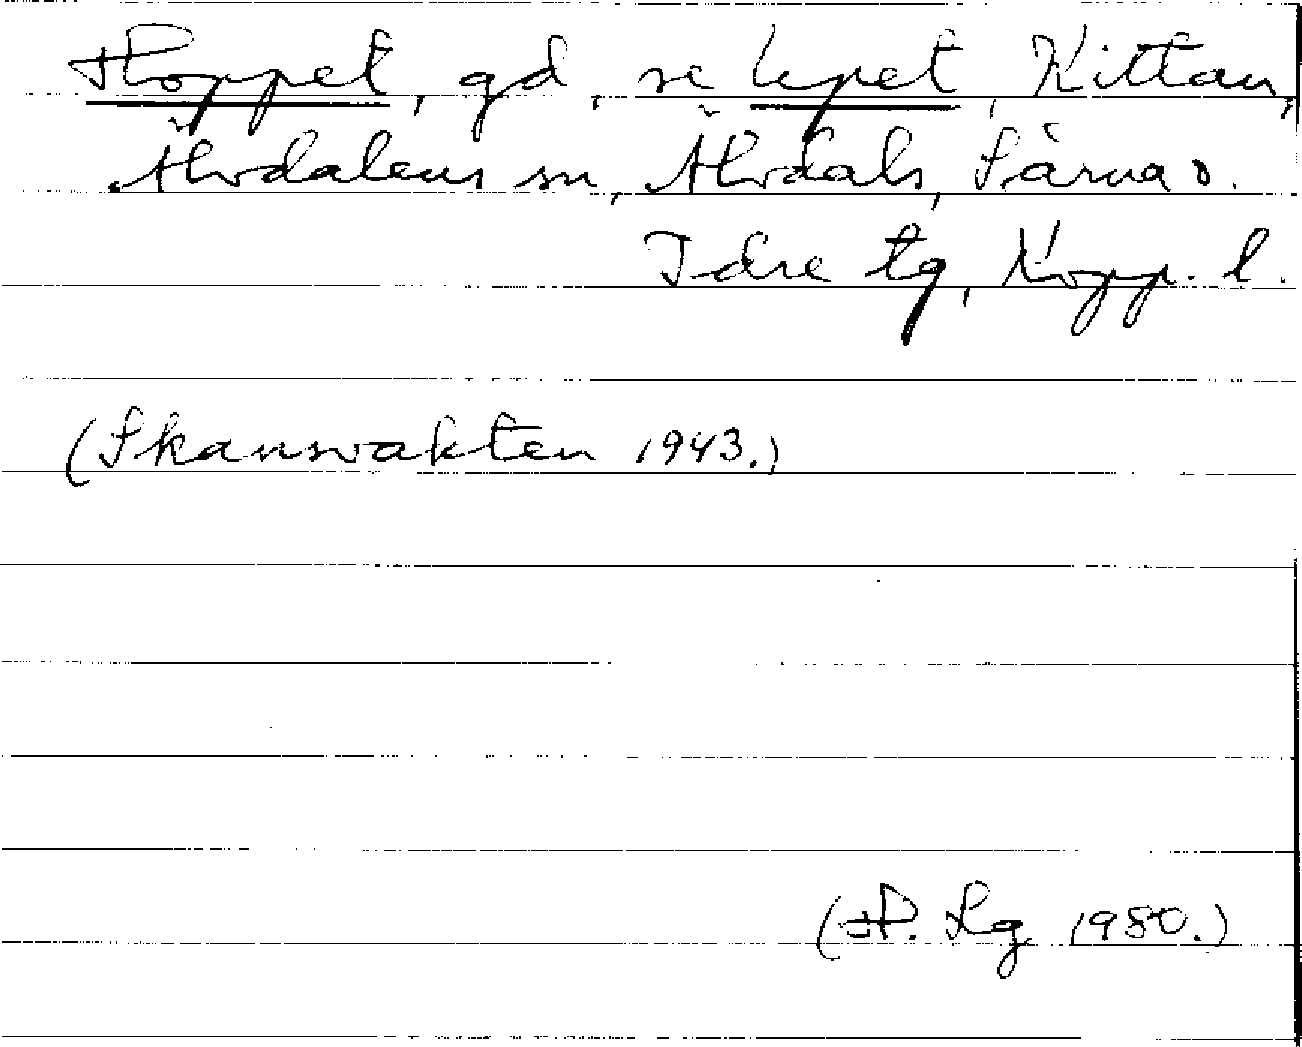 Hoppet, gd, se Uppet, Kittan,
Älvdalens sn, Älvdals, Särna o.
Idre tg, Kopp. l.
(Skansvakten 1943.)
(H. Lg 1980.)